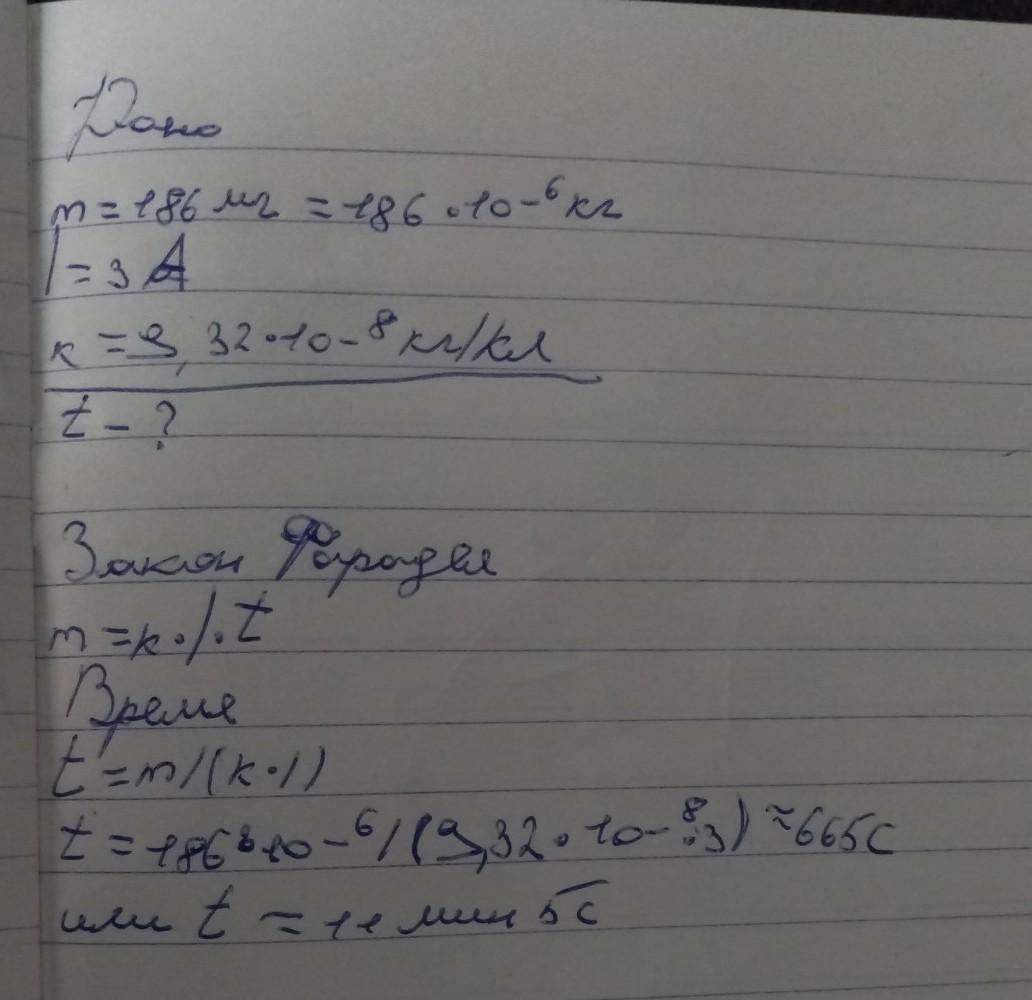 Дано
m = 186 мг = 186 · 10-⁶ кг
I = 3 А
к = 9,32 · 10-⁸ кг/Кл
t - ?
Закон Фарадея
m = к · I · t
Время
t = m/(к · I)
t = 186 · 10-⁶/(9,32 · 10-⁸ · 3) ≈ 665 с
или t = 11 мин 5 с